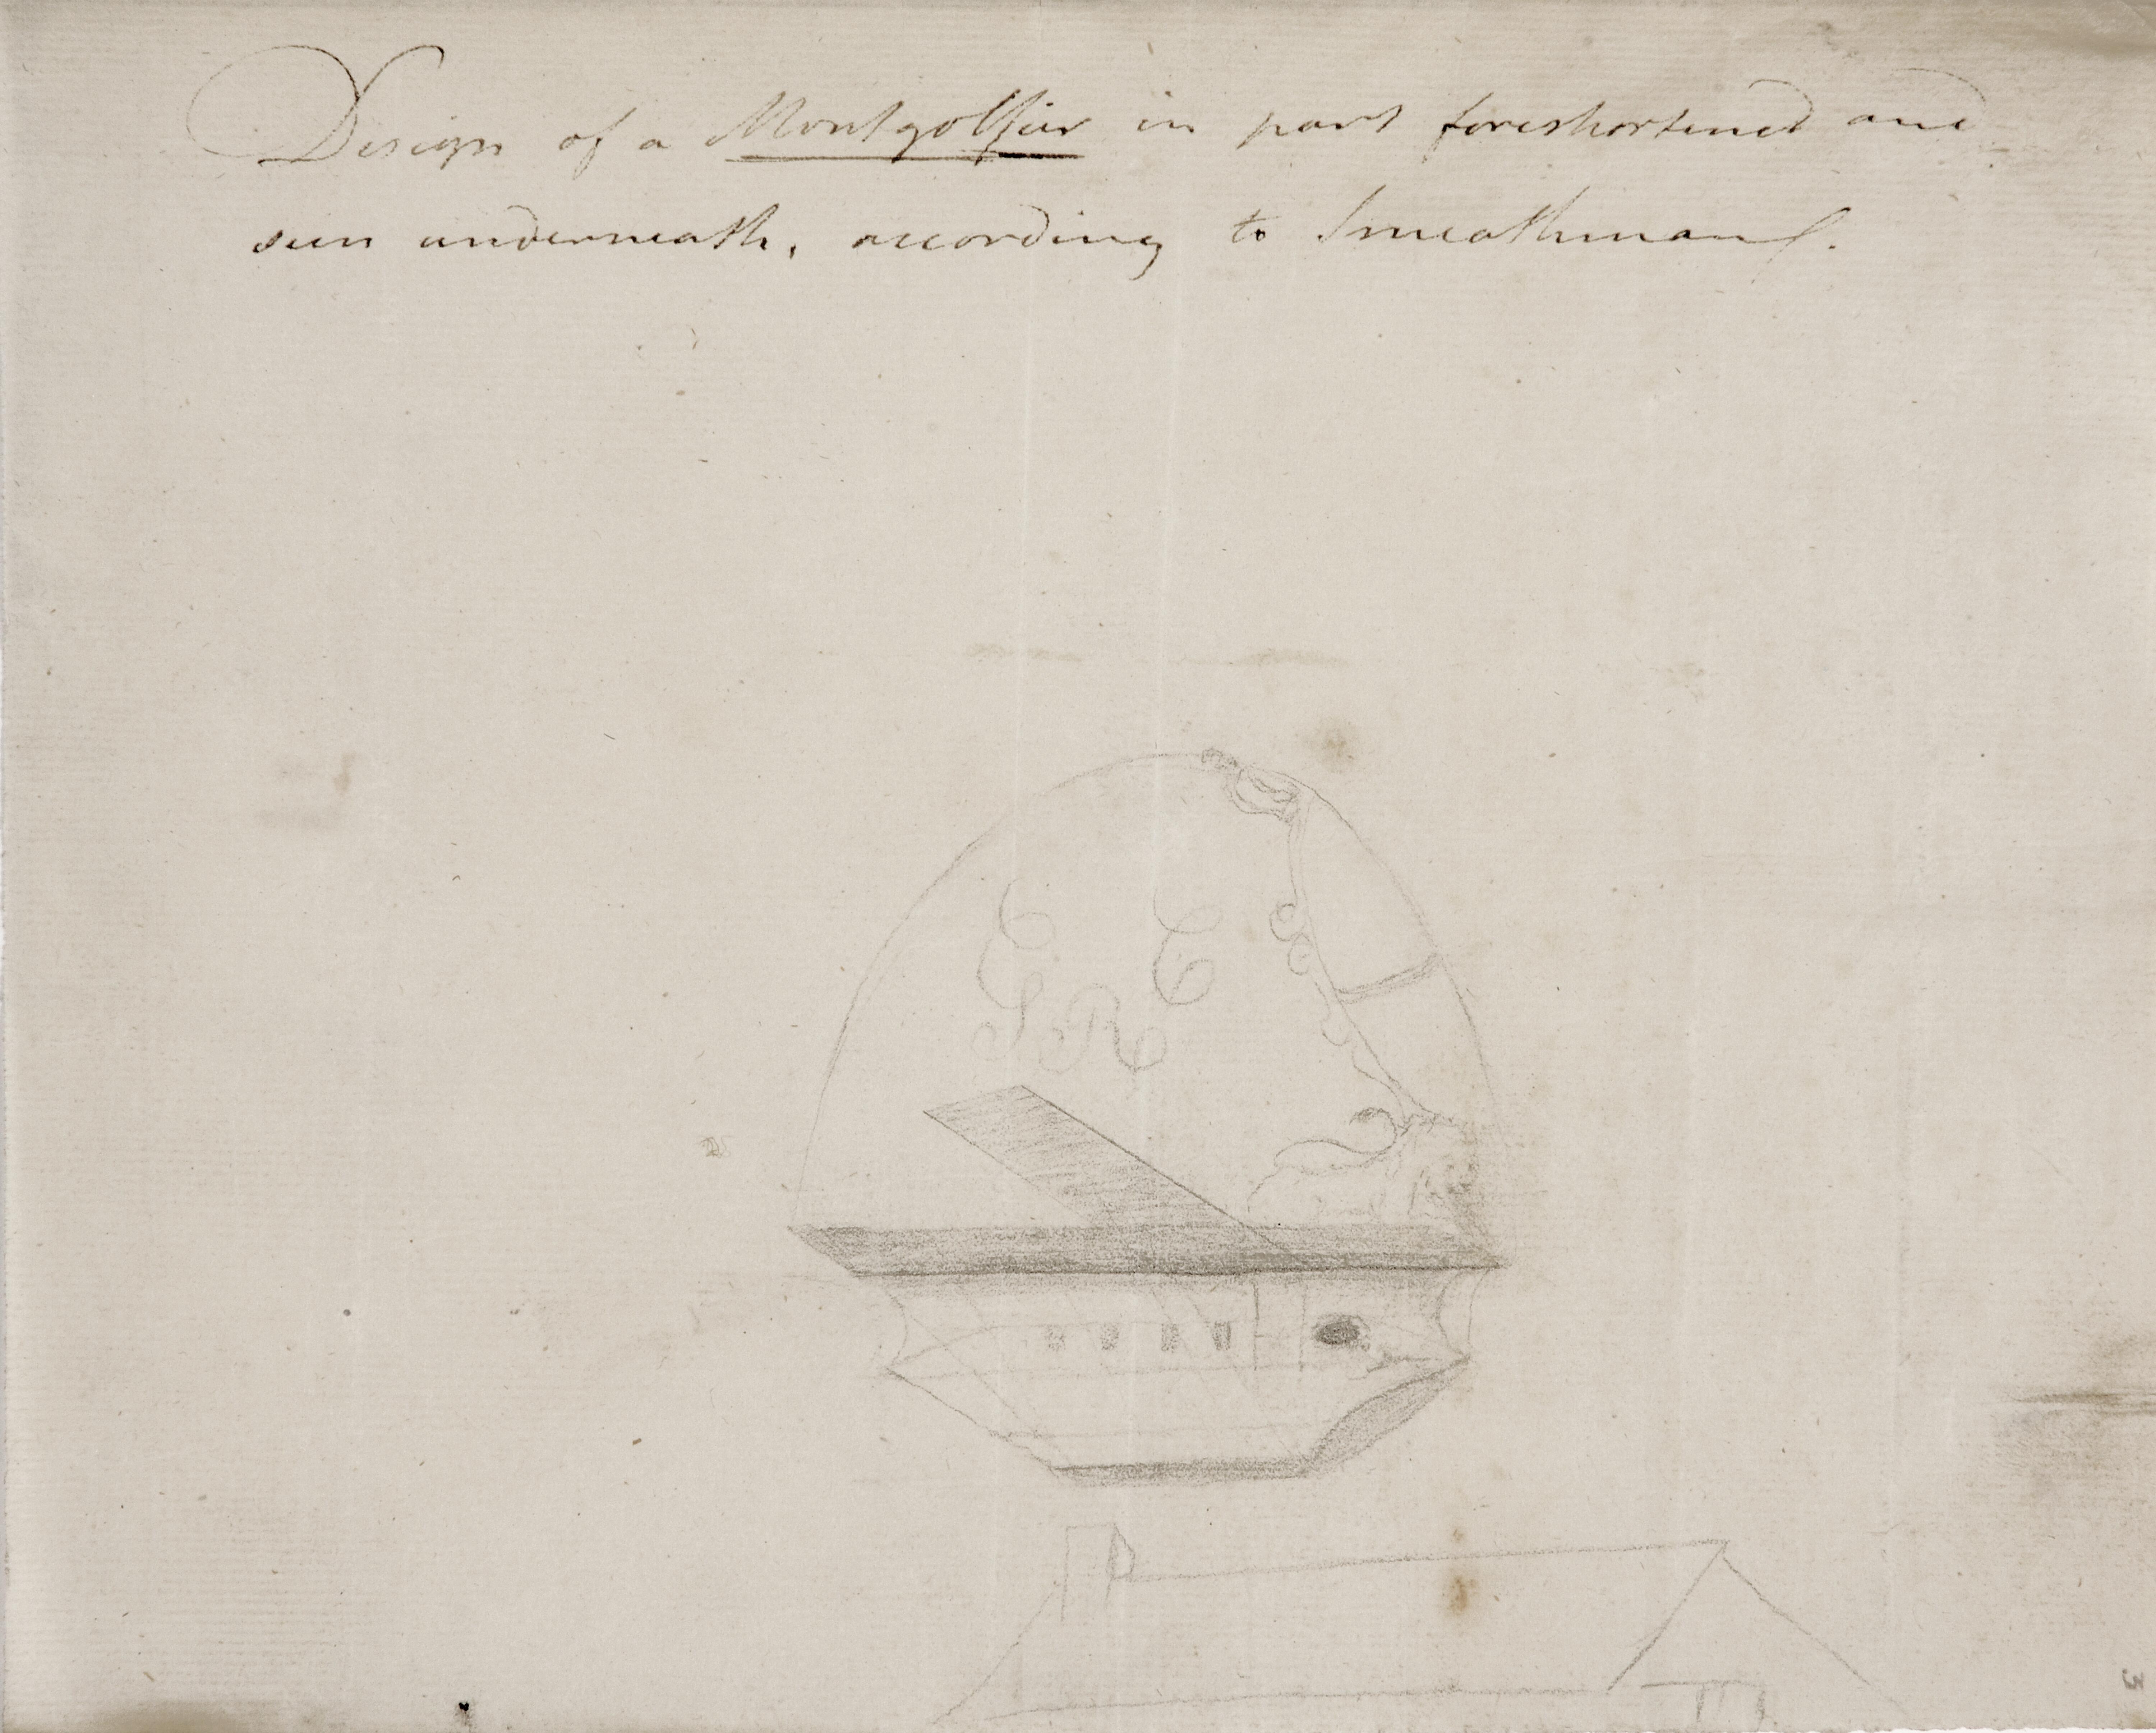 Design of a Montgolfier in part foreshortened and
seen underneath, according to Smeathman.
G R
3